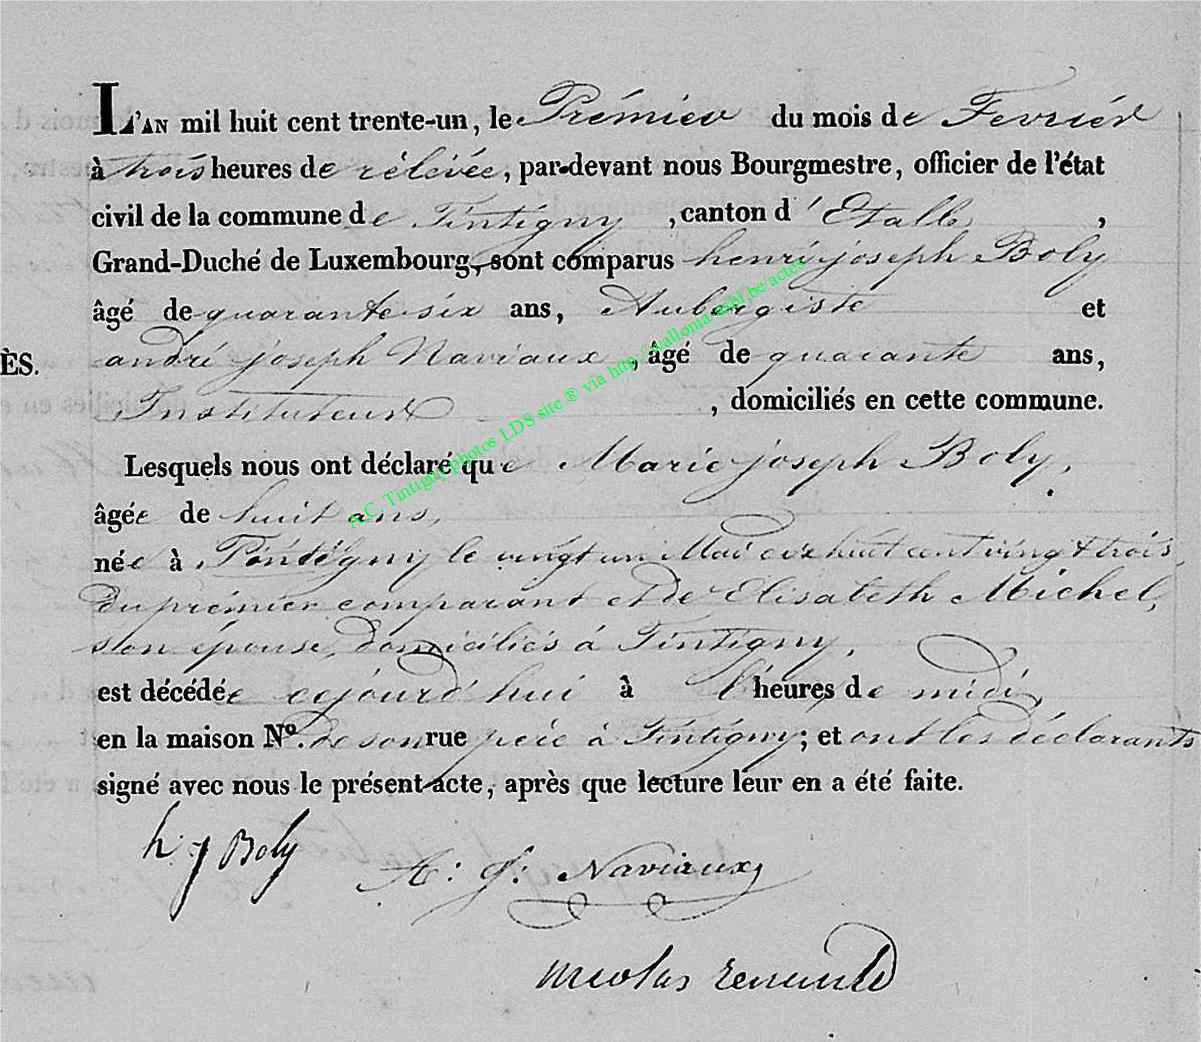 L'AN mil huit cent trente-un, le Prémiér du mois de Fevriér
à trois heures de rélévée, par-devant nous Bourgmestre, officier de l'état
civil de la commune de Tintigny, canton d'Etalle,
Grand-Duché de Luxembourg, sont comparus henri joseph Boly
âgé de quarante six ans, Aubergiste et
ÈS. andré joseph Naviaux, âgé de quarante ans,
Instituteur, domiciliés en cette commune.
Lesquels nous ont déclaré que Marie joseph Boly,
âgée de huit ans,
née à Tintigny le vingt un Mai dix huit cent vingt trois,
du prémier comparant et de Elisabeth Michel,
son épouse, domiciliés à Tintigny,
est décédée cejourd'hui à l'heures de midi,
en la maison Nº. de son rue père à Tintigny; et ont les déclarants
signé avec nous le présent acte, après que lecture leur en a été faite.
h j Boly
A: J: Naviaux
nicolas
A.C. Tintigny photos LDS site ® via http://wallonia-asbl.be/actes